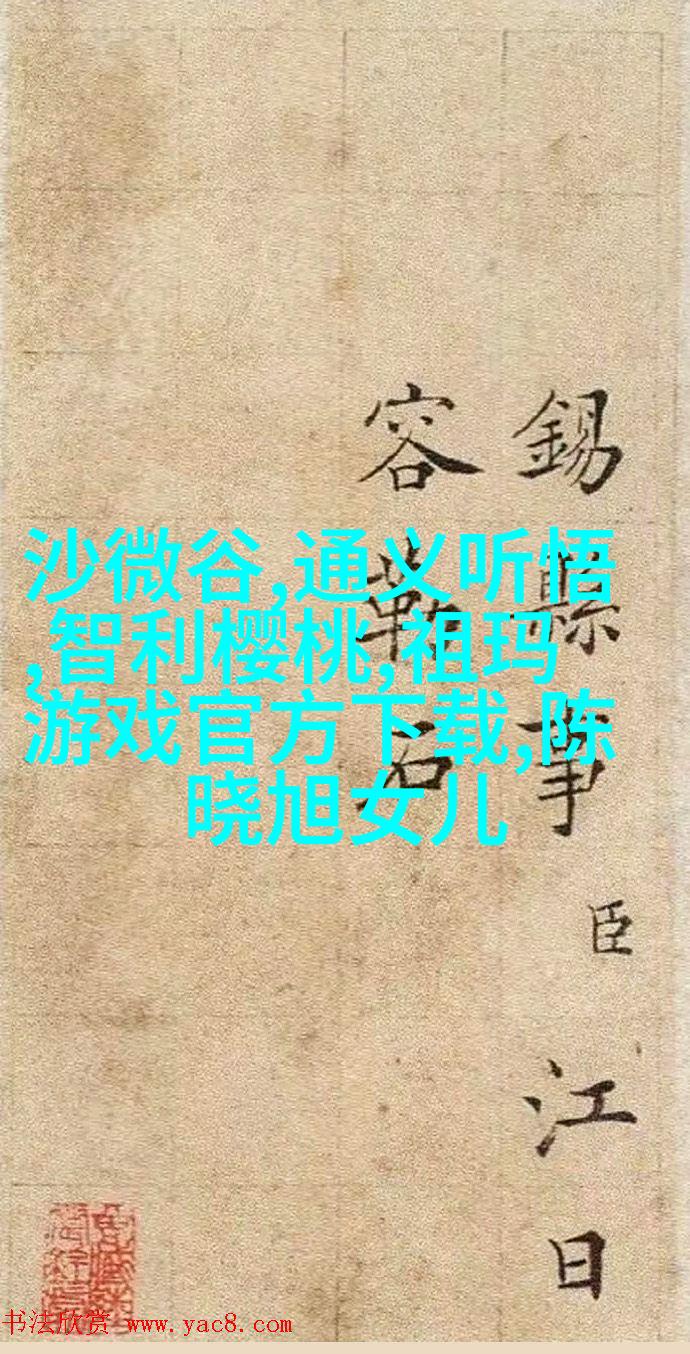 沙微谷,通义听悟
,智利樱桃,祖玛
游戏官方下载,陈
晓旭女儿
錫縣事臣江日
容勒石
书法欣赏 www.yac8.com